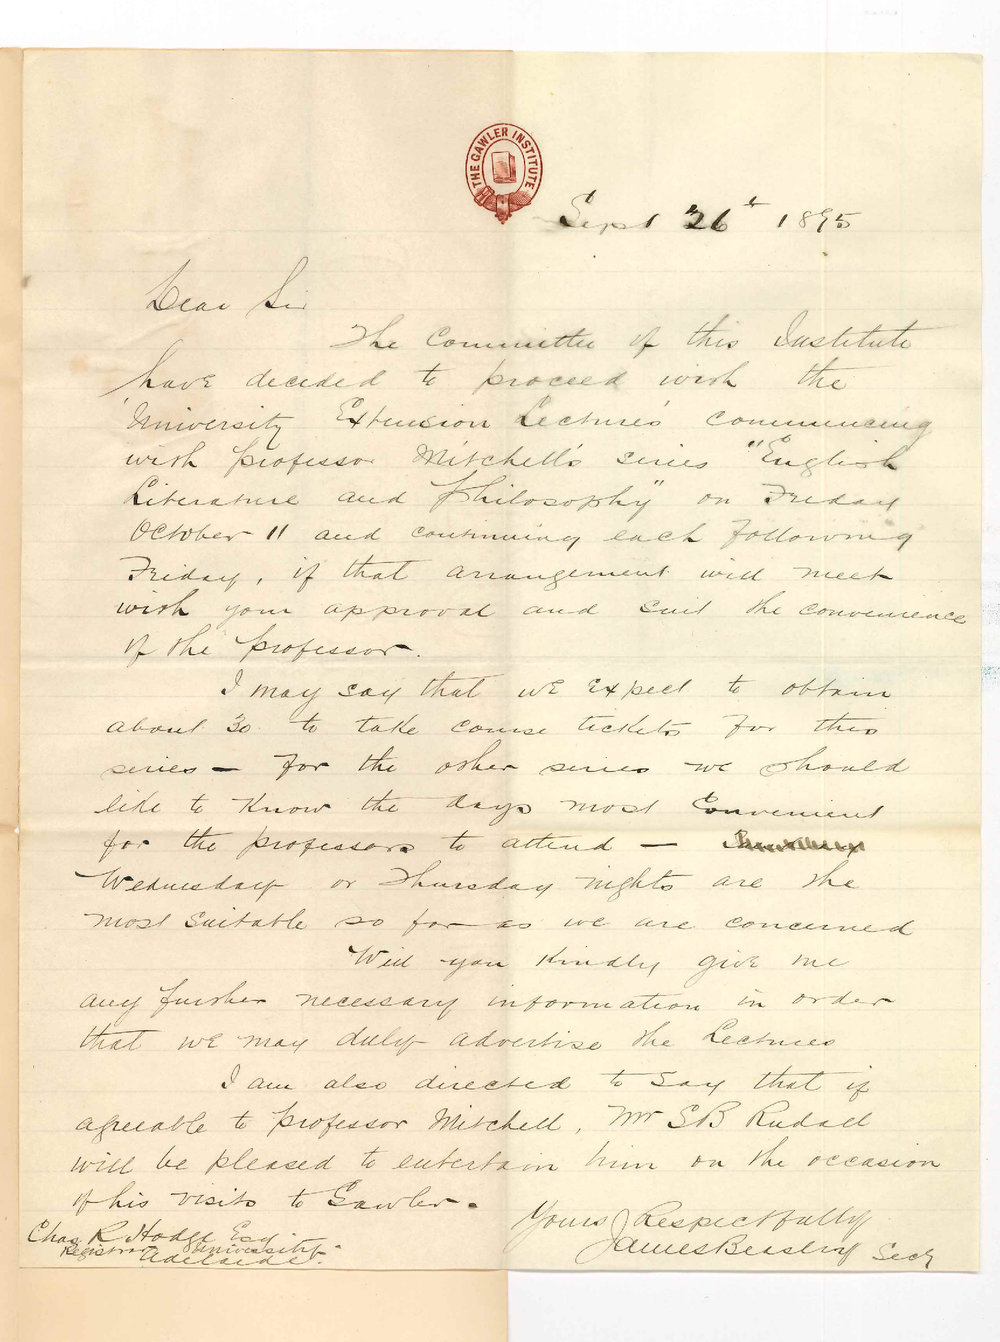 THE GAWLER INSTITUTE
Sept 26th 1895
Dear Sir
The Committee of this Institute
have decided to proceed with the
'University Extension Lectures' commencing
with professor Mitchell's series "English
Literature and Philosophy" on Friday
October 11 and continuing each following
Friday, if that arrangement will meet
with your approval and suit the convenience
of the professor.
I may say that we expect to obtain
about 30 to take course tickets for this
series – for the other series we should
like to know the days most convenient
for the professors to attend –
Wednesday or Thursday nights are the
most suitable so far as we are concerned
Will you kindly give me
any further necessary information in order
that we may duly advertise the Lectures
I am also directed to say that if
agreeable to professor Mitchell, Mr S B Rudall
will be pleased to entertain him on the occasion
of his visits to Gawler.
Yours Respectfully
James Beasley Secy
Chas R. Hodge Esq
Registrar University
Adelaide.